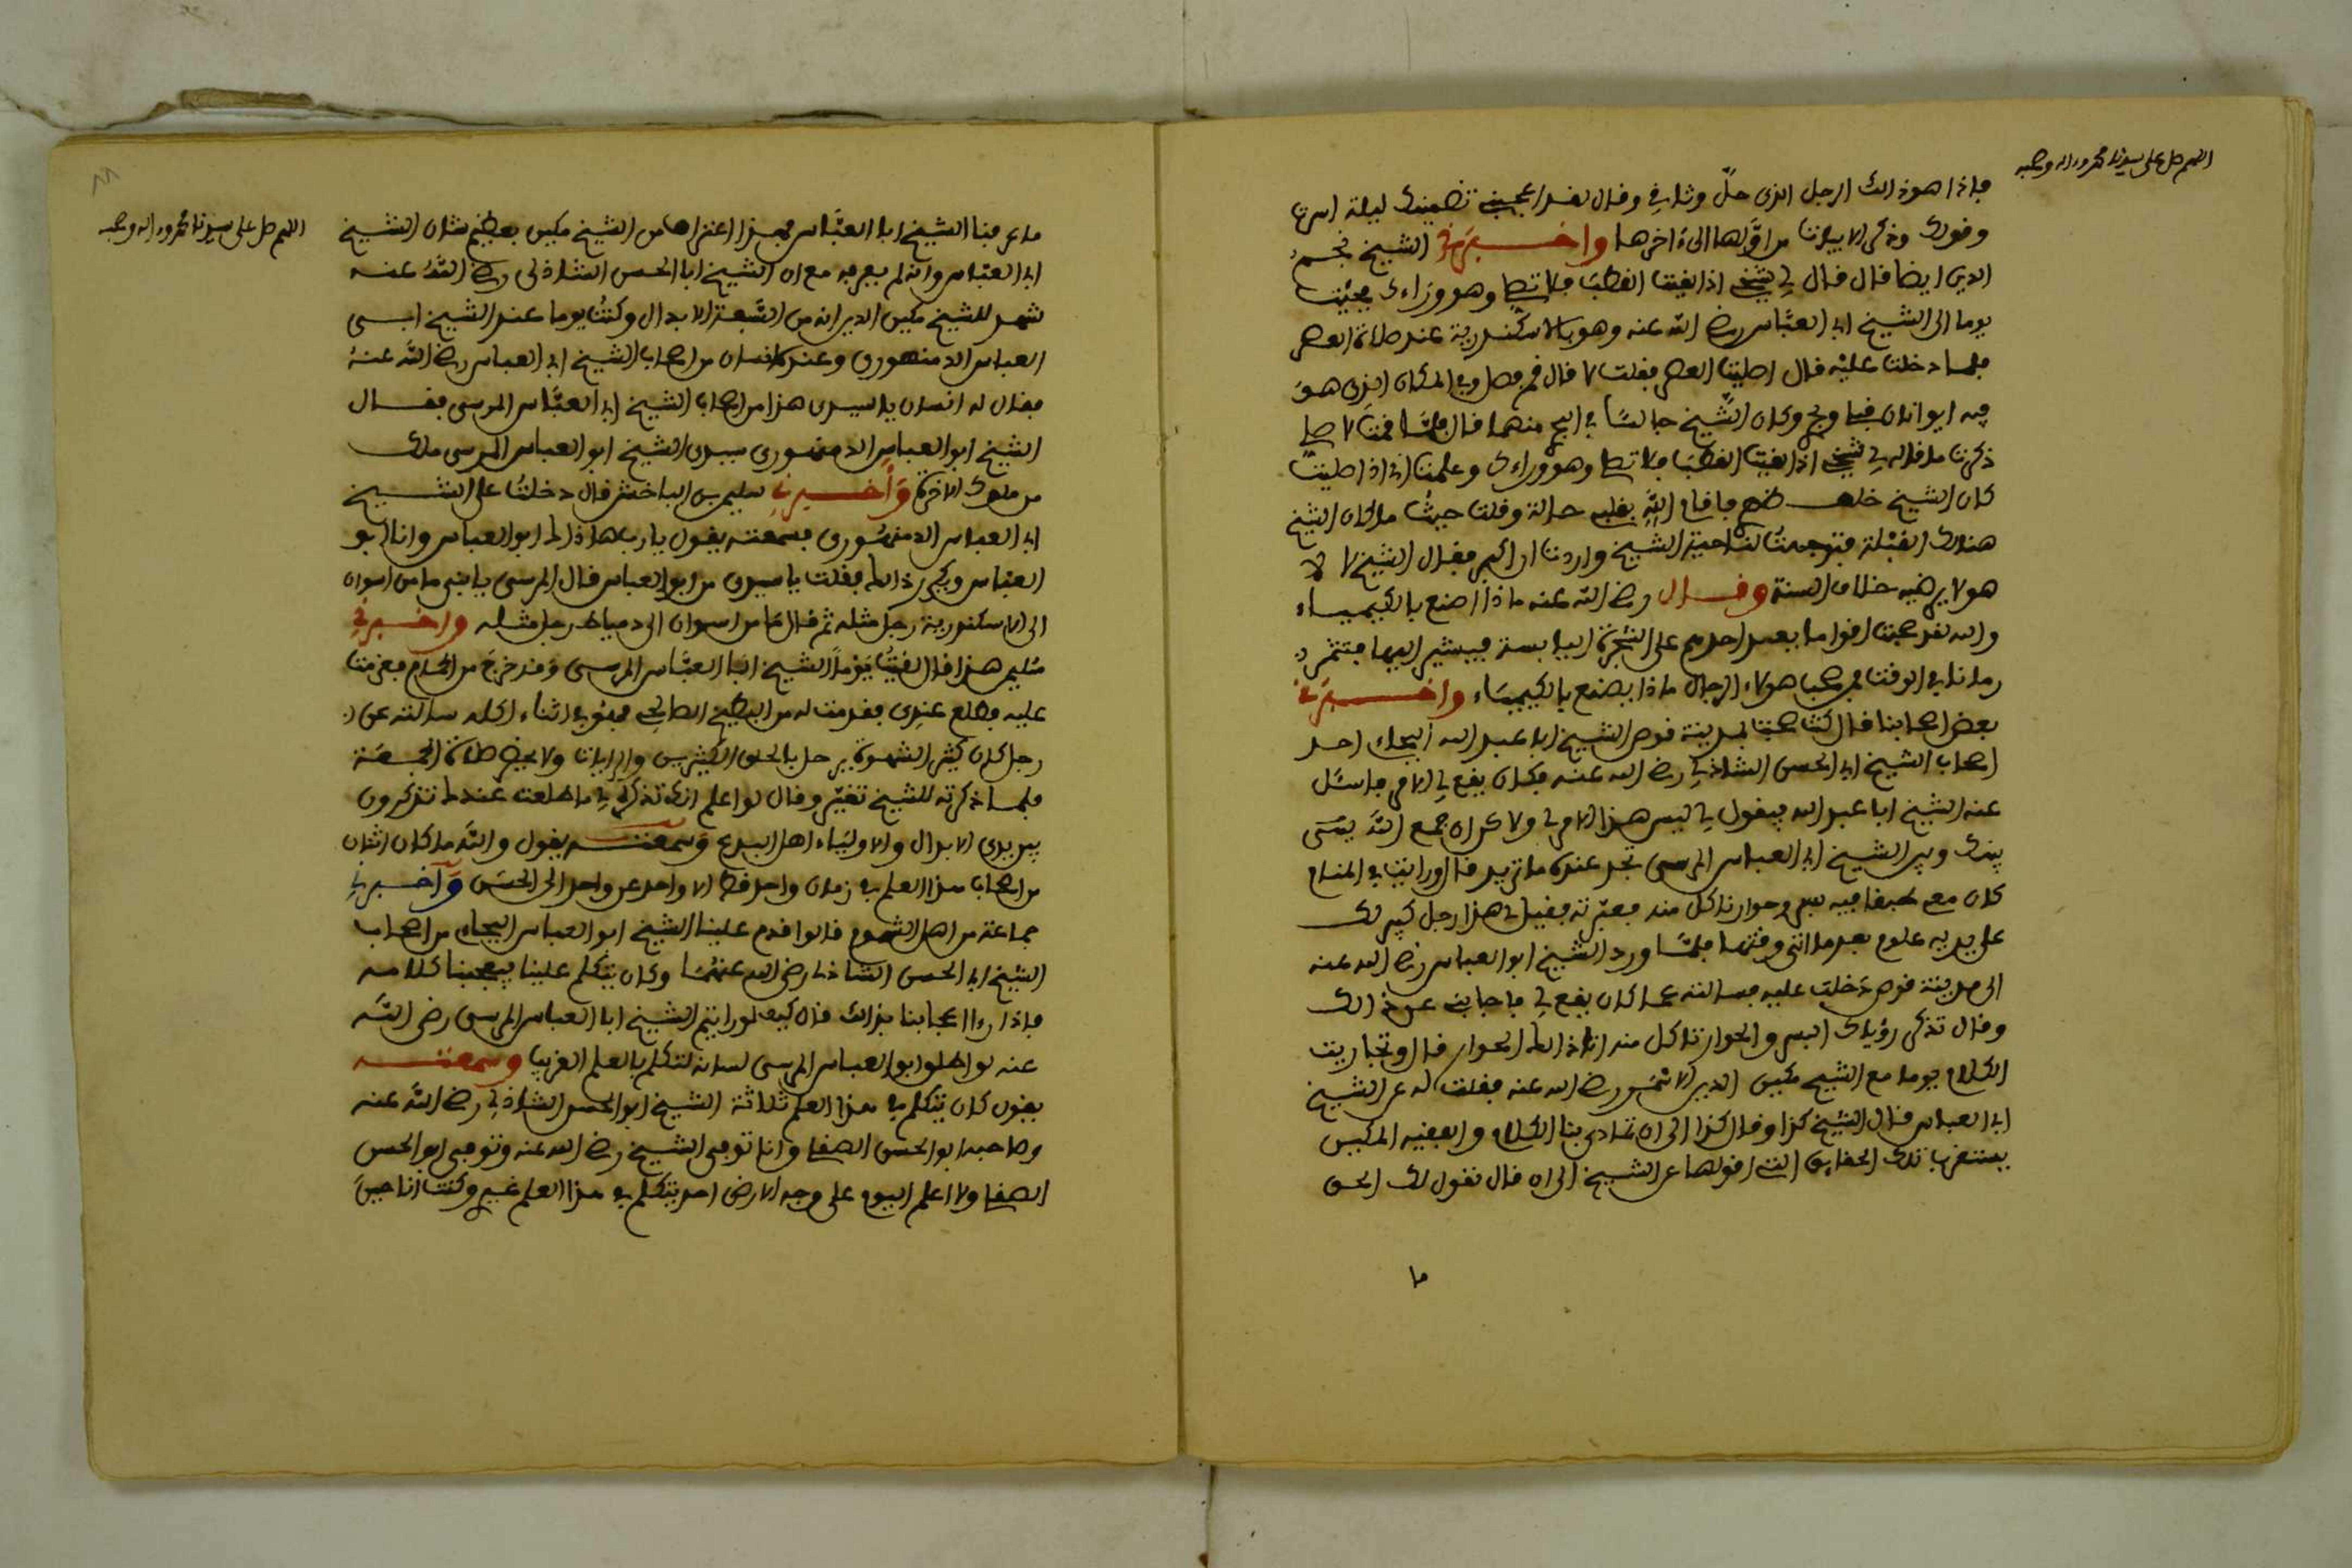 اللهم صل على سيدنا محمد واله وصحبه
فاذا هو ذالك الرجل الذى حلّ وثاقي وقال لقد اعجبني تضمينك ليلة اسرنا
وقولك وذكر الابيات من اوّلها الىٰ ءاخرها واخبرني الشيخ نجم
الدين ايضا قال قال لي شيخي اذا لقيت القطب فلا تصل وهو وراءك فجئت
يوما الى الشيخ ابى العبّاس رضي الله عنه وهو بالاسكندرية عند صلاة العصر
فلما دخلت عليْه قال اصليت العصر فقلت لا قال قم فصل وفي المكان الذى هو
فيه ايوانان قبلى وبحرى وكان الشّيخ جالسًا في البحرى منهما قال فلمّا قمت لاصلي
ذكرت ما قاله لي شيخي اذا لقيت القطب فلا تصل وهو وراءك وعلمت انى اذا صليت
كان الشيخ خلف ظهرى فاقام اللّه بقلبى حالة وقلت حيثُ ما كان الشيخ
هنالك القبْلة فتوجهتُ لناحية الشيخ واردت ان اكبر فقال الشيخ لا لا
هو لا يرضيه خلاف السنة وقال رضي الله عنه ماذا اصنع بالكيمياء
والله لقد صحبت اقواما يعبر احدهم على الشجرة اليابسة فيشير اليها فتثمر
رمانا في الوقت فمن صحب هولاء الرجال ماذا يصنع بالكيمياء واخبرني
بعض اصحابنا قال كنت صحبت بمدينة قوص الشيخ ابا عبد الله البجائى احد
اصحاب الشيخ ابى الحسن الشاذلي رضي الله عنه فكان يقع لي الامر فاسئل
عنه الشيخ ابا عبد الله فيقول لي ليس هذا الامر لى ولاكن ان جمع اللّه بيْنى
بينك وبين الشيخ ابى العباس المرسى تجد عنده ما تريد قال ورايت في المنام
كان معى طبقا فيه بسر وحوارنا كل منه فعبرته فقيل لى هذا رجل كبير لك
على يديه علوم بعد ما اتى وقتها فلمّا ورد الشيخ ابو العباس رضي الله عنه
الى مدينة قوص دخلت عليه فسالته عما كان يقع لي فاجابنى عن ذالك
وقال تذكر رؤياك البسر والحوارنا كل منه انا ذالك الحوار قال وتجاريت
الكلام يوما مع الشيخ مكين الدين الاسْمَر رضي الله عنه فقلت له عن الشيخ
ابى العباس قال الشيخ كذا وقال كذا الى ان تمادى بنا الكلام والفقيه المكين
يستغرب تلك الحقايق التى اقولها عن الشيخ الى ان قال نقول لك الحق
ما
اللهم صل على سيدنا محمد واله وصحبه
ما عرفنا الشيخ ابا العبّاس فهذا اعتراف من الشيخ مكين بعظيم شان الشيخ
ابى العبّاس وانه لم يعرفه مع ان الشيخ ابا الحسن الشاذلى رضي اللّهُ عنه
شهد للشيخ مكين الدين انه من السّبعة الابدال وكنتُ يوما عند الشيخ ابى
العباس الدمنهورى وعنده انسان من اصحاب الشيخ ابى العباس رضي اللّه عنهُ
فقال له انسان يا سيدى هذا من اصحاب الشيخ ابى العبّاس المرسى فقال
الشيخ ابو العباس الدمنهورى سيدى الشيخ ابو العباس المرسى ملك
من ملوك الاخرة وأخبرني سليم بن الباخش قال دخلتُ على الشيخ
ابى العباس الدمنهُورى فسمعته يقول يارب هاذاك ابو العباس وانا ابو
العبّاس ويكرر ذالك فقلت يا سيدى من ابو العباس قال المرسى يا بنى ما من اسوان
الى الاسكندرية رجل مثله ثم قال ما من اسوان الى دمياط رجل مثله واخبرني
سُليم هذا قال لقيتُ يَوْماً الشيخ ابَا العبّاس المرسى وقد خرجَ من الحمام فعزمت
عليه فطلع عندى فقدمت له من البطيخ الصالحى فهو في اثناء اكله سالته عن
رجل كان كثير الشهوة يرحل بالخلق الكثيرين والرايات ولا يحضر صلاة الجمعة
فلما ذكرته للشيخ تغيّر وقال لو اعلم انك تذكره لي ما طلعت عندك تذكرون
بين يدى الابدال والاولياء اهل البدع وسمعته يقول واللّه ما كان اثنان
من اصحاب هذا العلم في زمان واحد قط الا واحد عن واحد الى الحسن وأخبرني
جماعة من اهل الشموم قالوا قدم علينا الشيخ ابو العباس البجائى من اصحاب
الشيخ ابى الحسن الشاذلى رضي الله عنهما وكان يتكلم علينا فيعجبنا كلامه
فاذا رءا اعجابنا بذالك قال كيف لو رايتم الشيخ ابا العباس المرسى رضى اللّه
عنه لو اطلق ابو العباس المرسى لسانه لتكلم بالعلم الغريب وسمعته
يقول كان يتكلم في هذا العلم ثلاثة الشيخ ابو الحسن الشاذلي رضي اللّه عنه
وصاحبه ابو الحسن الصقلى وانا توفى الشيخ رضي الله عنه وتوفى ابو الحسن
الصقلى ولا اعلم اليوم على وجه الارض احد يتكلم في هذا العلم غيرى وكنت انا حين